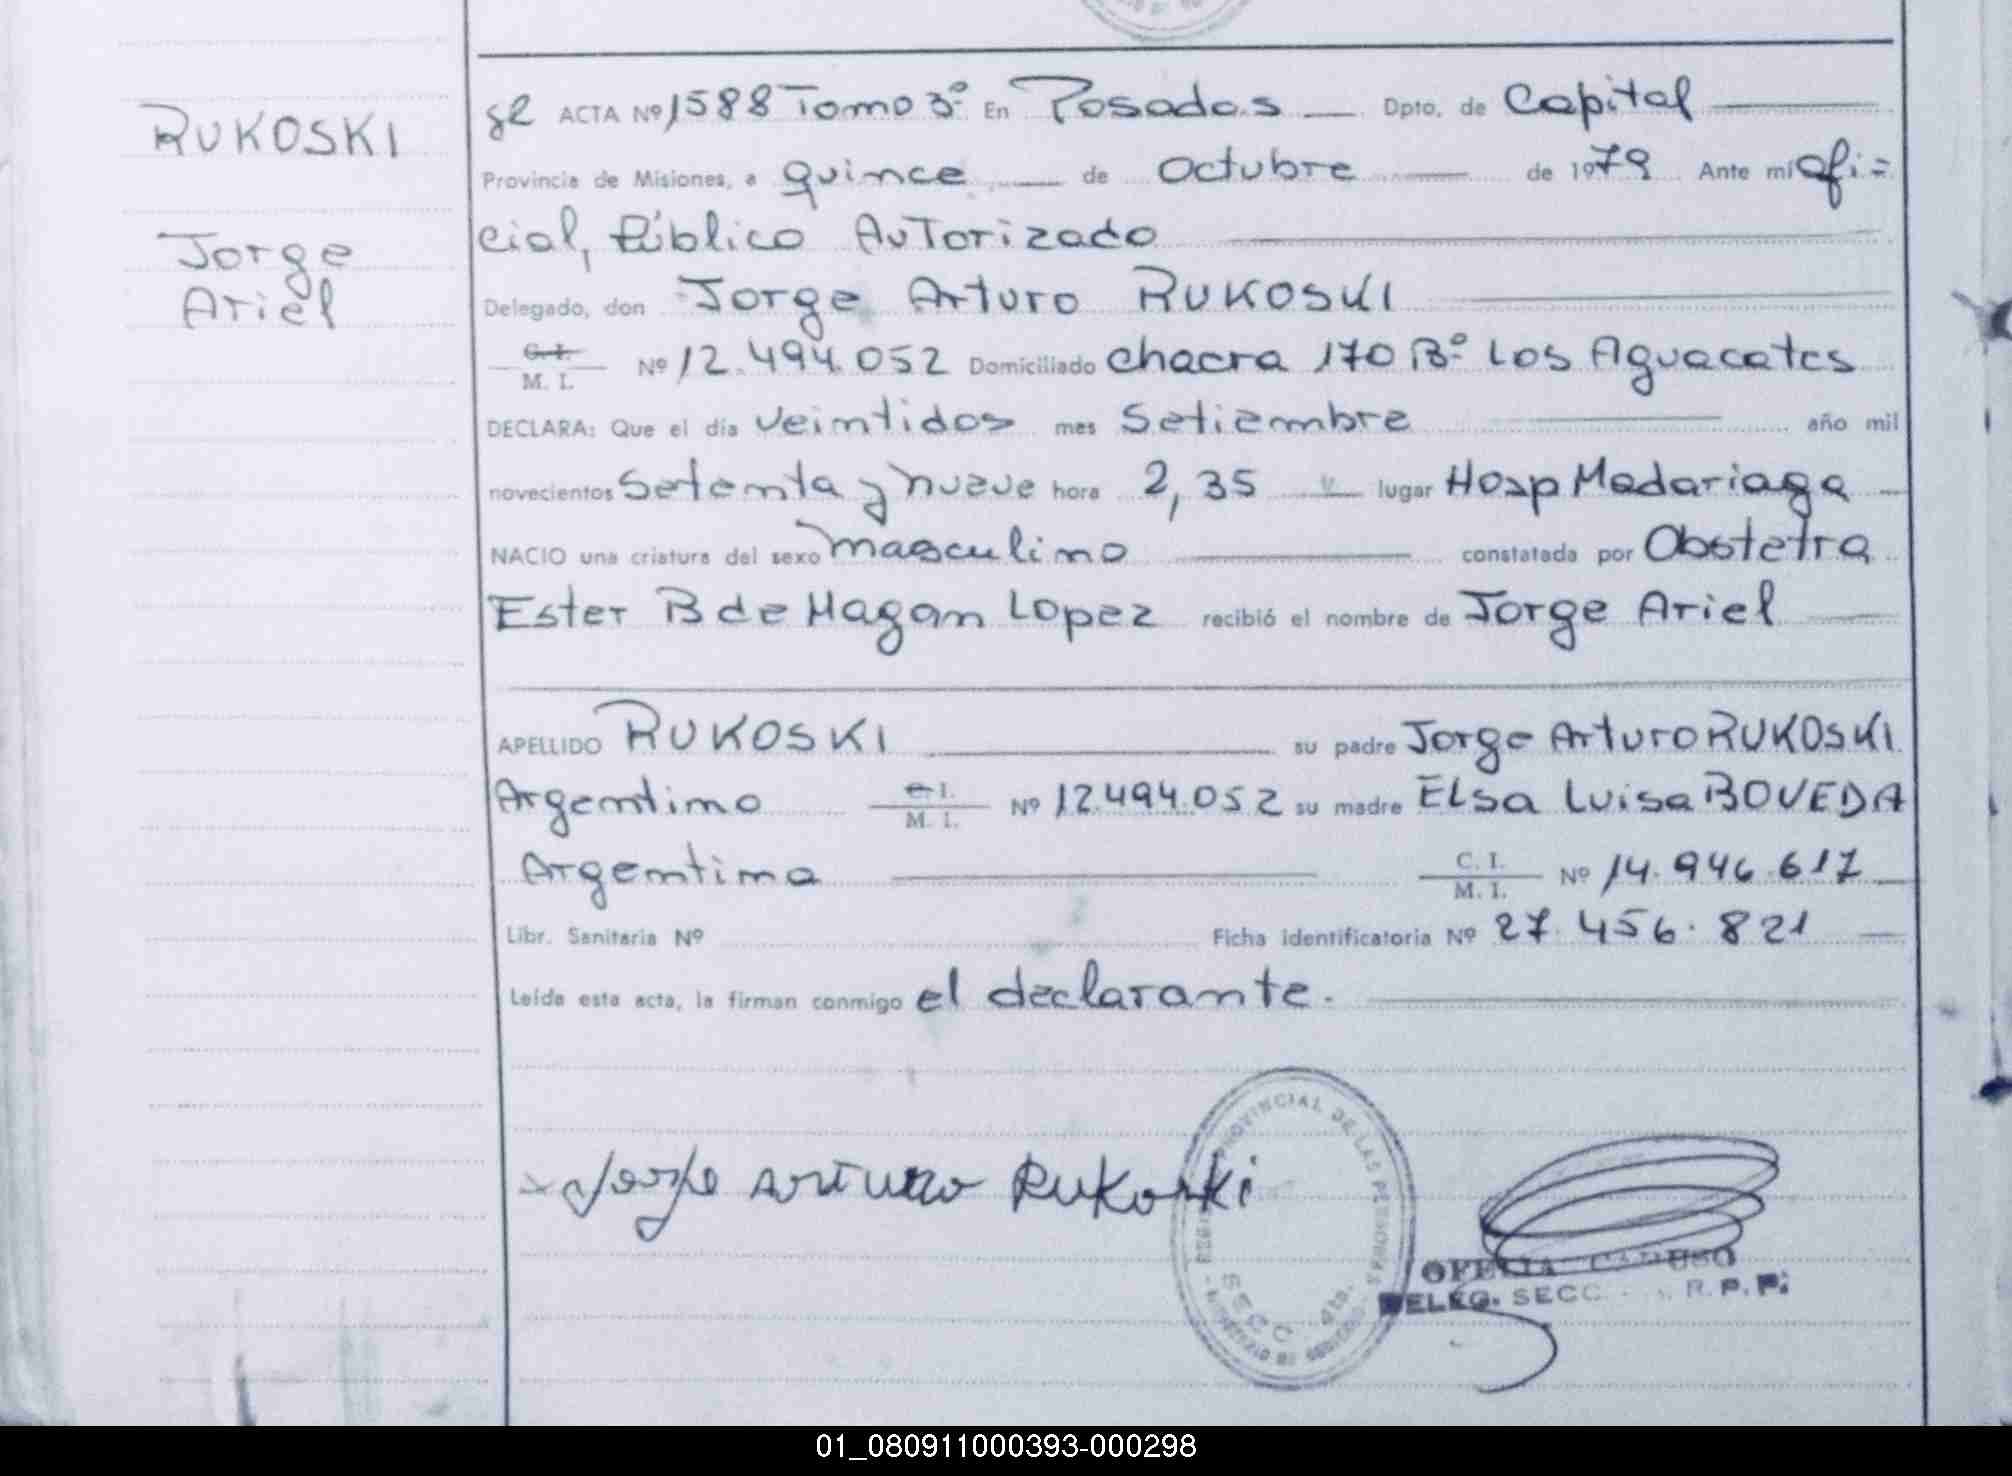 RUKOSKI
Jorge
Ariel
ACTA Nº 1588 Tomo 3º En Posadas Dpto. de Capital
Provincia de Misiones, a quince de Octubre de 1979 Ante mí ofi=
cial, Público AuTorizado
Delegado, don Jorge Arturo RUKOSKI
C. I. / M. I. Nº 12.494.052 Domiciliado chacra 170 Bº Los Aguacates
DECLARA: Que el día veintidos mes Setiembre año mil
novecientos Setenta y nueve hora 2,35 lugar Hosp Madariaga
NACIO una criatura del sexo masculino constatada por Obstetra
Ester B de Magan Lopez recibió el nombre de Jorge Ariel
APELLIDO RUKOSKI su padre Jorge Arturo RUKOSKI
Argentino C. I. / M. I. Nº 12.494.052 su madre Elsa Luisa BOVEDA
Argentina C. I. / M. I. Nº 14.946.617
Libr. Sanitaria Nº Ficha identificatoria Nº 27.456.821
Leída esta acta, la firman conmigo el declarante.
Jorge Arturo Rukoski
PROVINCIAL DE LAS PERSONAS
SECC. 4ta.
DELEG. SECC. R.P.P.
01_080911000393-000298